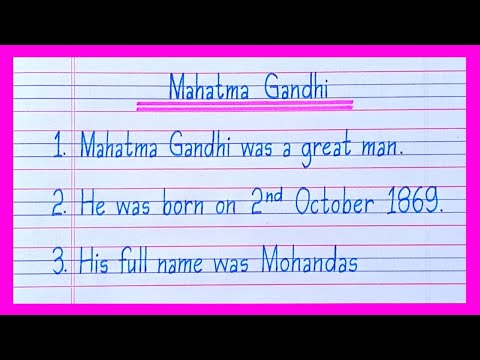 Mahatma Gandhi
1. Mahatma Gandhi was a great man.
2. He was born on 2nd October 1869.
3. His full name was Mohandas